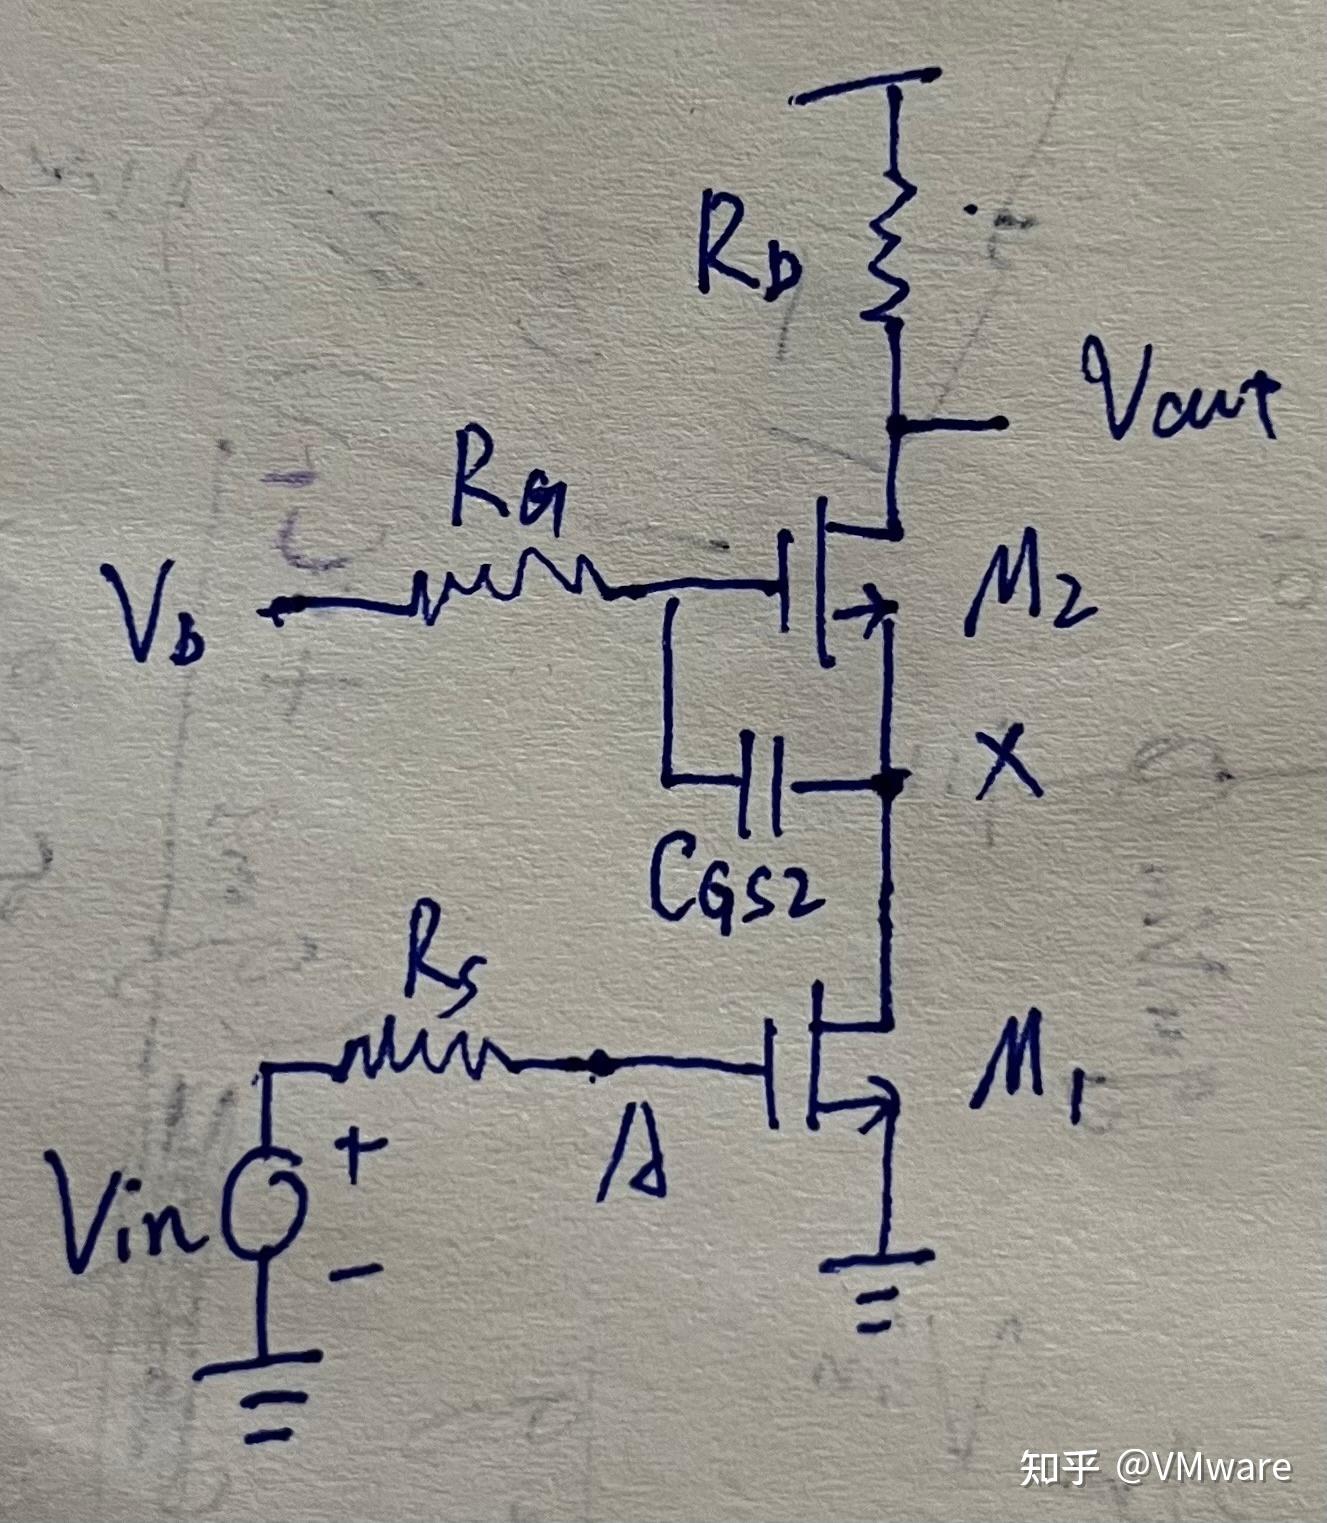 RD
Vout
RG
Vb
M2
X
CGS2
RS
A
M1
Vin
+
−
知乎 @VMware